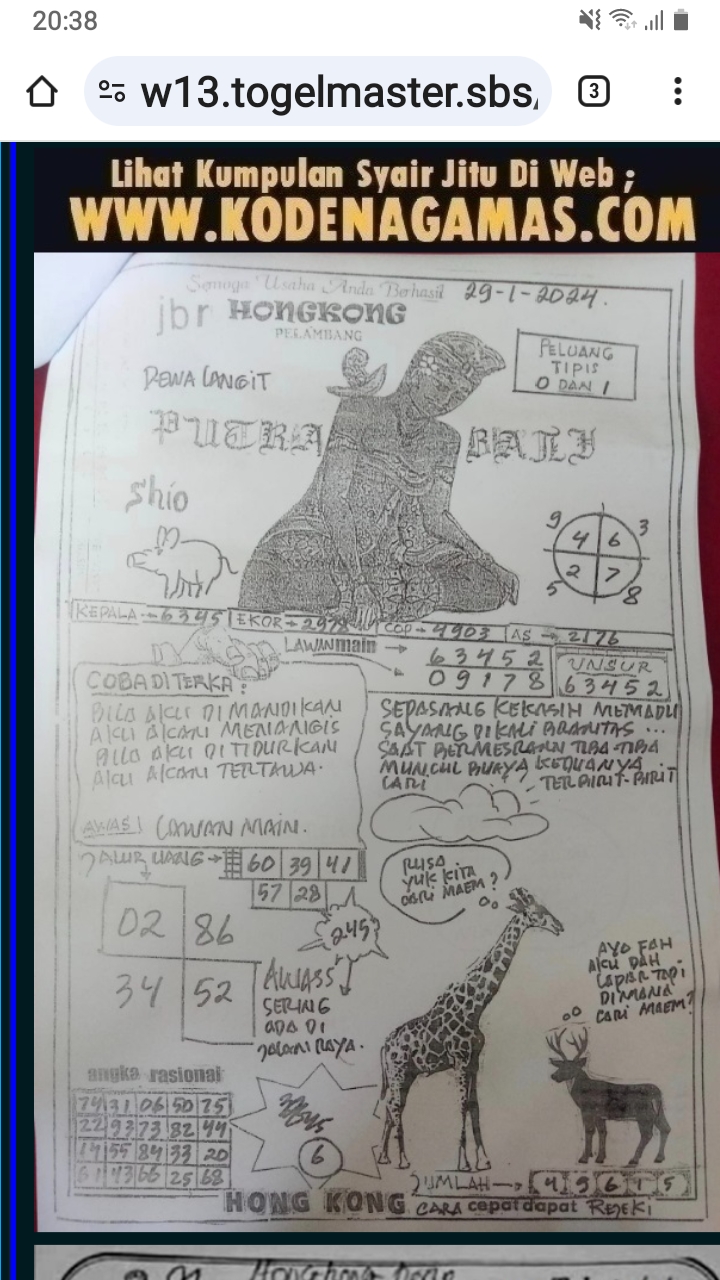 20:38
3
w13.togelmaster.sbs,
Lihat Kumpulan Syair Jitu Di Web ;
WWW.KODENAGAMAS.COM
Semoga Usaha Anda Berhasil 29-1-2024.
jbr HONGKONG
PELAMBANG
PELUANG
TIPIS
0 DAN 1
DEWA LANGIT
PUTRA BALI
Shio
9 3
4 6
2 7
5 8
KEPALA → 6345 EKOR → 2978 COP → 4903 AS → 2176
LAWAN main → 63452
09178
UNSUR
63452
COBA DITERKA :
BILA AKU DI MANDIKAN
AKU AKAN MENANGIS
BILA AKU DI TIDURKAN
AKU AKAN TERTAWA.
AWAS! LAWAN MAIN.
SEPASANG KEKASIH MEMADU
SAYANG DI KALI BRANTAS ...
SAAT BERMESRAAN TIBA-TIBA
MUNCUL BUAYA KEDUANYA
LARI TERBIRIT-BIRIT
JALUR UANG → 60 39 41
57 28
02 86
34 52
245?
AWASS
SERING
ADA DI
JALAN RAYA.
RUSA
YUK KITA
CARI MAEM?
AYO FAH
AKU DAH
LAPAR TAPI
DIMANA
CARI MAEM?
angka rasional
74 31 06 50 75
22 93 73 82 44
14 55 84 33 20
61 43 66 25 68
6
JUMLAH → 4 9 6 1 5
HONG KONG CARA cepat dapat REJEKI